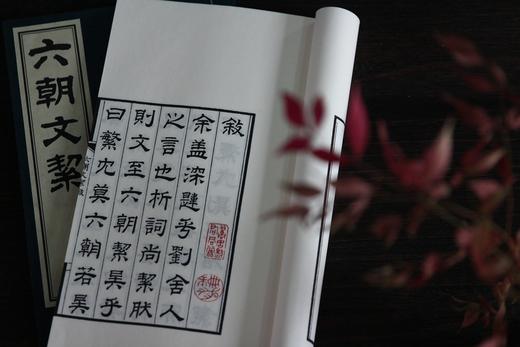 六朝文絜
敍
余盖深韙乎劉舍人
之言也析詞尚絜肰
則文至六朝絜矣乎
曰繁尤莫六朝若矣